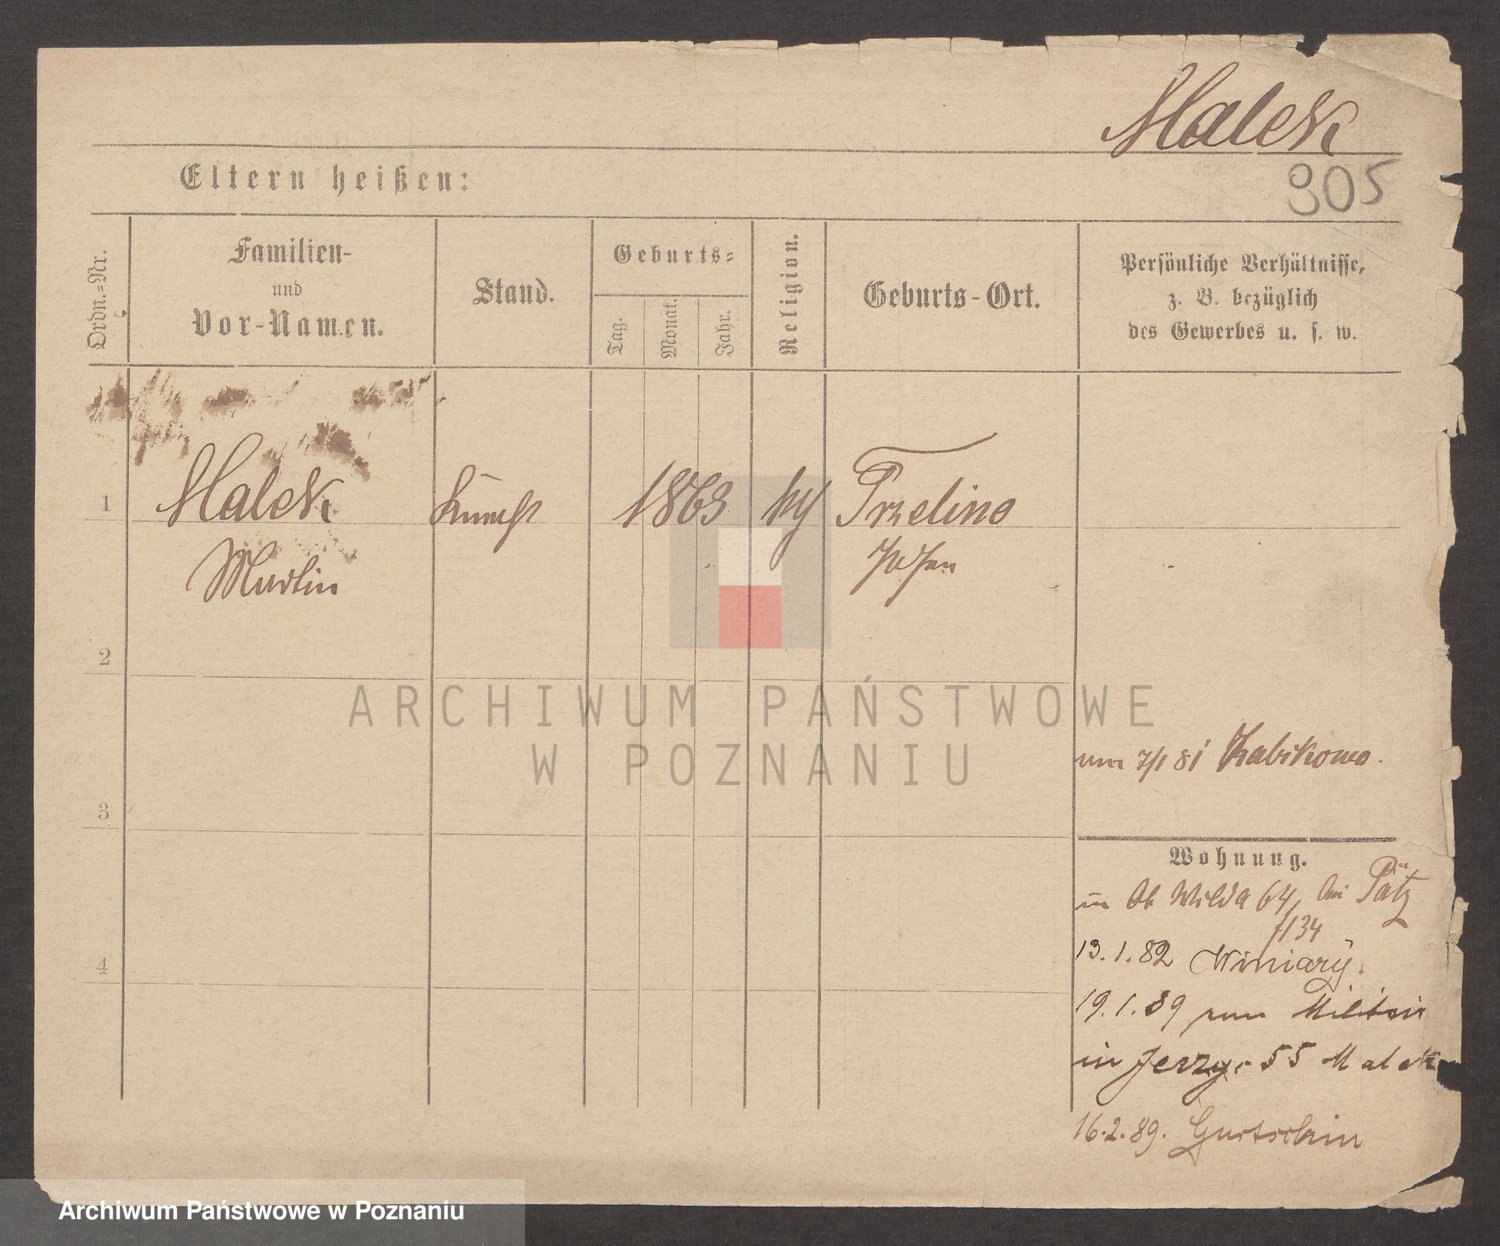 Malek
905
Eltern heißen:
Ordn.-Nr.
Familien-
und
Vor-Namen.
Stand.
Geburts-
Tag.
Monat.
Jahr.
Religion.
Geburts-Ort.
Persönliche Verhältnisse,
z. B. bezüglich
des Gewerbes u. s. w.
1
Malek
1863
Martin
2
3
4
7/1 81 Zabikowo.
Wohnung.
in Ob Wilda 64, bei Pätz
134
13.1.82 Winiary.
19.1.89 vom Militair
in Jerzyc 55 Malek
16.2.89. Gurtschin
ARCHIWUM PAŃSTWOWE
W POZNANIU
Archiwum Państwowe w Poznaniu